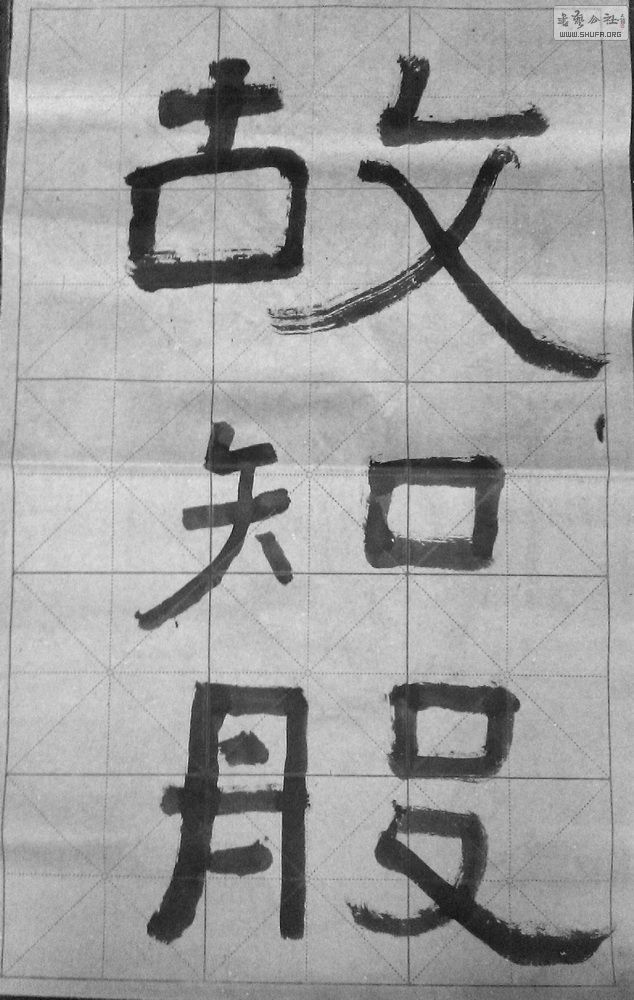 故知般
書藝公社
WWW.SHUFA.ORG